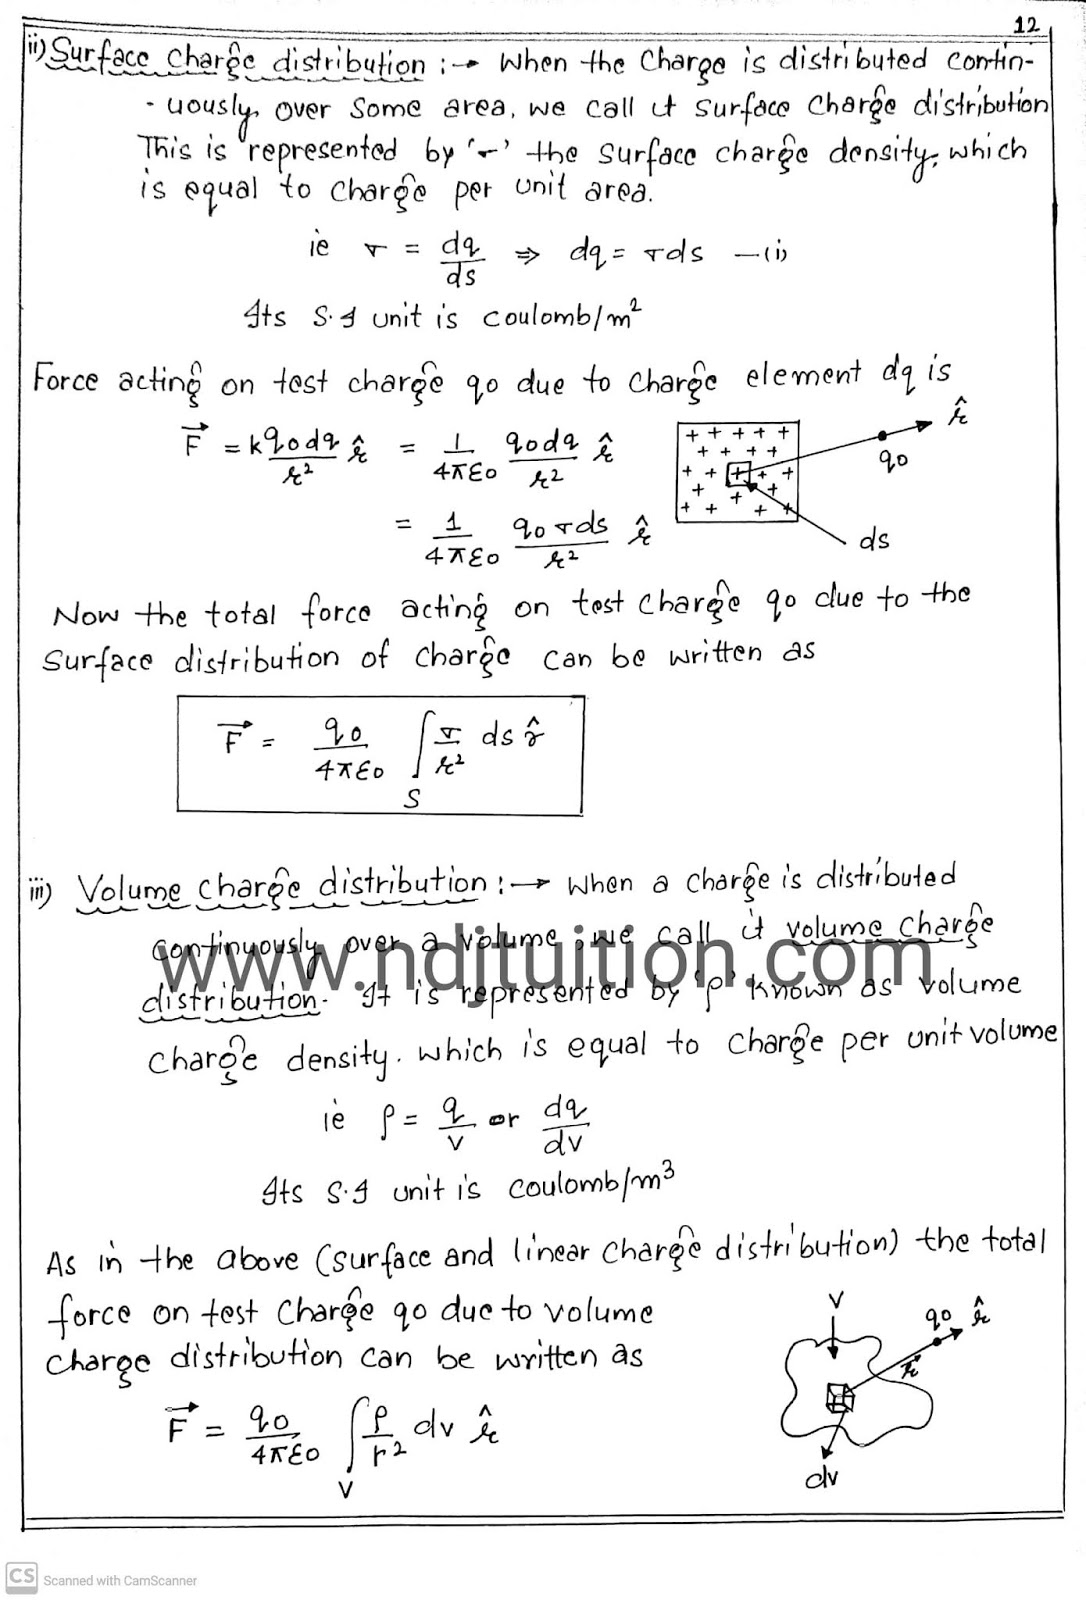 12
ii) Surface charge distribution :→ When the charge is distributed contin-
-uously, over some area, we call it surface charge distribution
This is represented by 'σ' the surface charge density, which
is equal to charge per unit area.
ie σ = dq/ds ⇒ dq = σds —(i)
Its S.I unit is coulomb/m²
Force acting on test charge q0 due to charge element dq is
F⃗ = k q0dq/r² r̂ = 1/4πε0 q0dq/r² r̂
= 1/4πε0 q0σds/r² r̂
r̂
q0
ds
Now the total force acting on test charge q0 due to the
surface distribution of charge can be written as
F⃗ = q0/4πε0 ∫S σ/r² ds r̂
iii) Volume charge distribution :→ When a charge is distributed
continuously over a volume, we call it volume charge
www.ndjtuition.com
distribution. It is represented by 'ρ' known as volume
charge density. which is equal to charge per unit volume
ie ρ = q/v or dq/dv
Its S.I unit is coulomb/m³
As in the above (surface and linear charge distribution) the total
force on test charge q0 due to volume
charge distribution can be written as
F⃗ = q0/4πε0 ∫V ρ/r² dv r̂
V
q0 r̂
r⃗
dv
CS Scanned with CamScanner